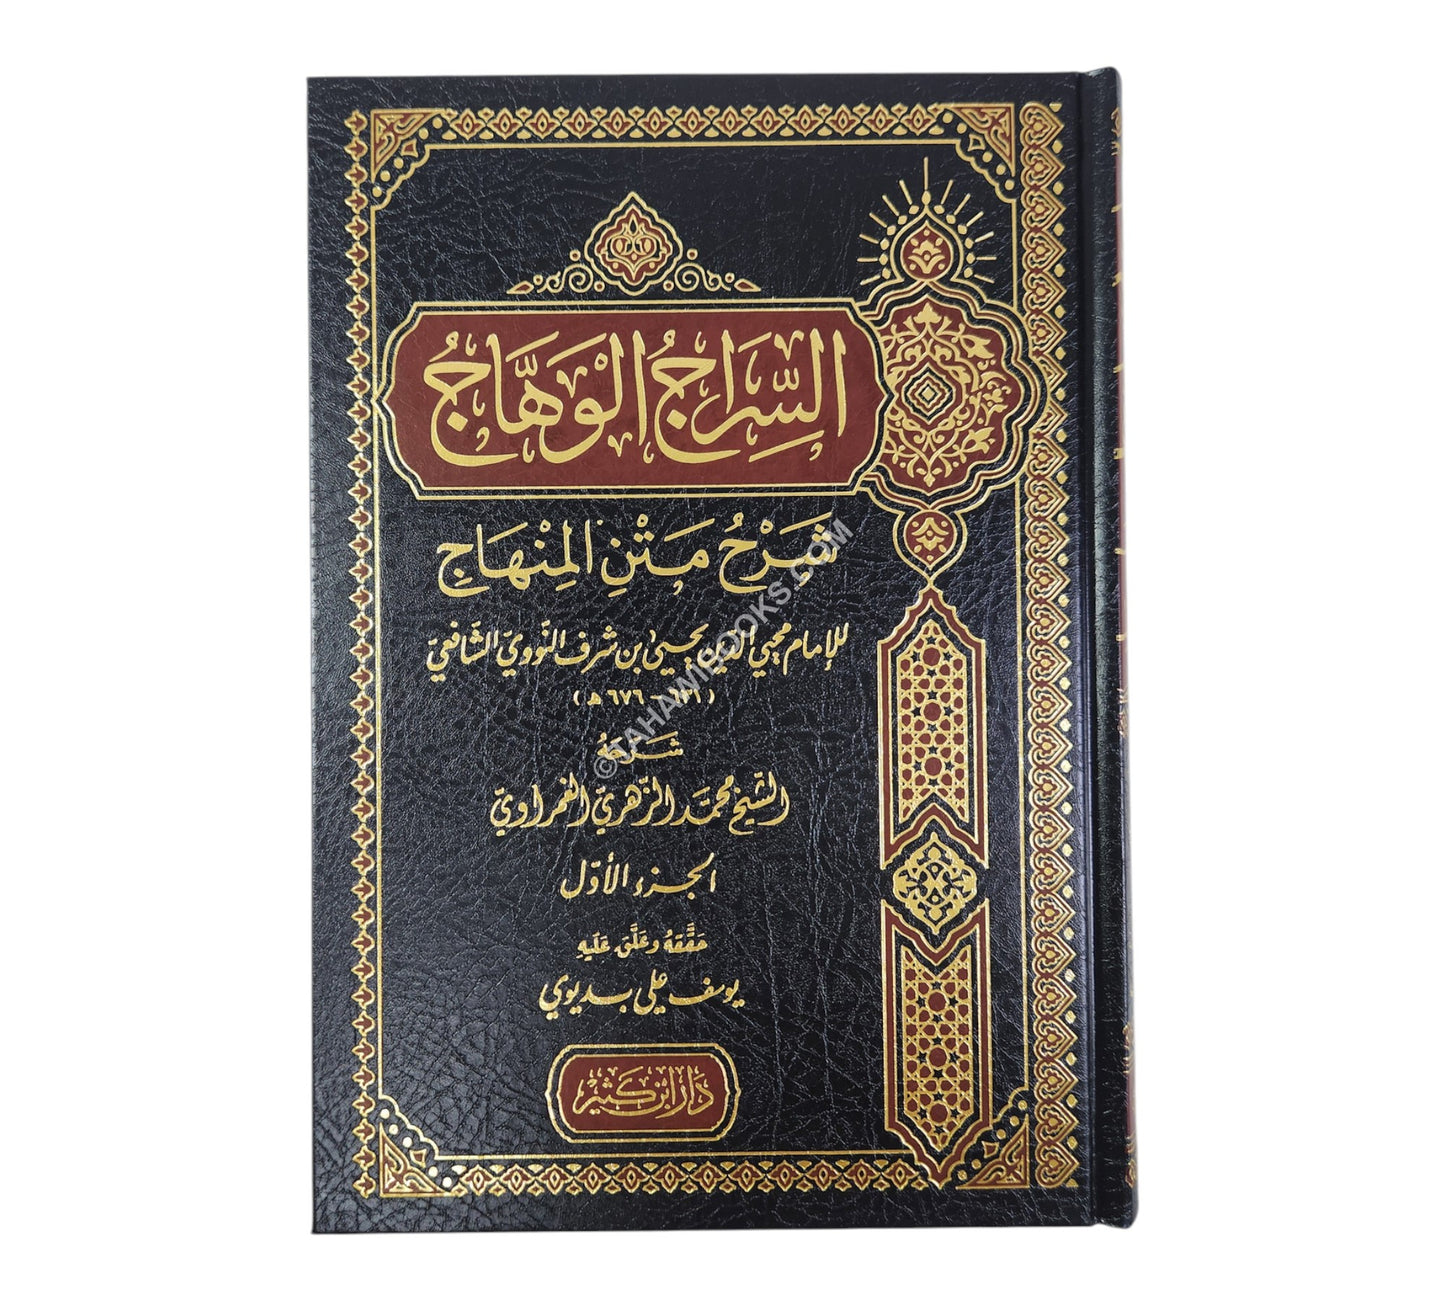 السِّرَاجُ الْوَهَّاجُ
شَرْحُ مَتْنِ الْمِنْهَاجِ
للإمام محيي الدين يحيى بن شرف النّوويّ الشّافعيّ
(٦٣١ - ٦٧٦ هـ)
شَرَحَهُ
الشّيخ محمّد الزّهريّ الغمراويّ
الجزء الأوّل
حَقَّقَهُ وَعَلَّقَ عَلَيهِ
يوسف علي بديوي
دَار ابْن كَثير
©TAHAWIBOOKS.COM